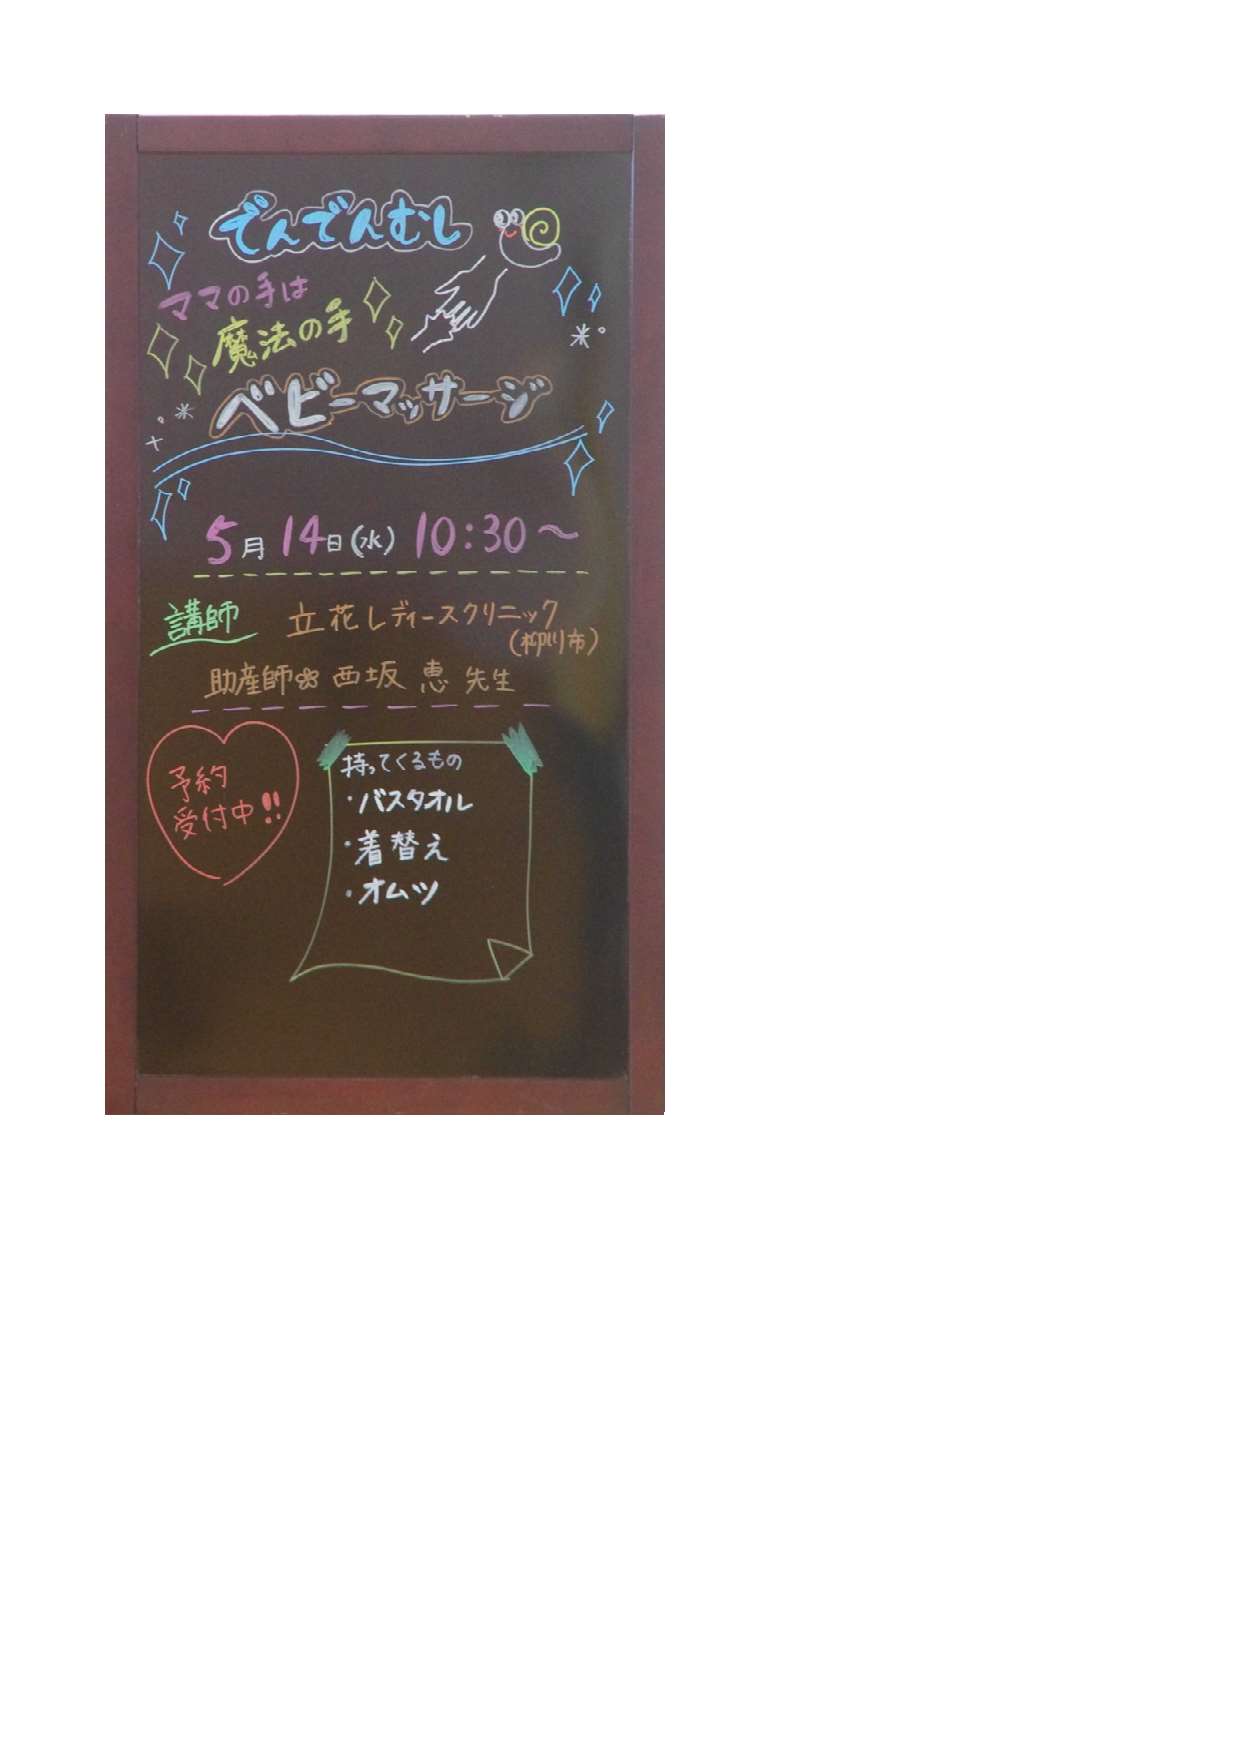 でんでんむし
ママの手は
魔法の手
ベビーマッサージ
5月14日(水) 10:30～
講師 立花レディースクリニック
(柳川市)
助産師 西坂 恵 先生
予約
受付中!!
持ってくるもの
・バスタオル
・着替え
・オムツ